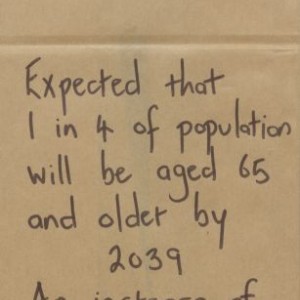 Expected that
1 in 4 of population
will be aged 65
and older by
2039
An increase of